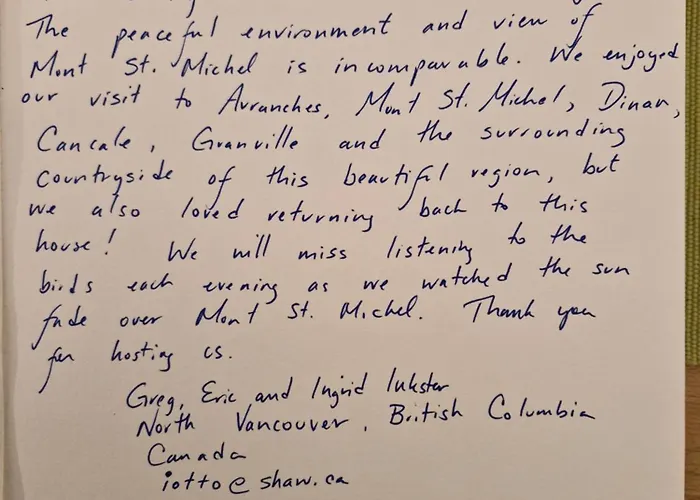 The peaceful environment and view of
Mont St. Michel is incomparable. We enjoyed
our visit to Avranches, Mont St. Michel, Dinan,
Cancale, Granville and the surrounding
countryside of this beautiful region, but
we also loved returning back to this
house! We will miss listening to the
birds each evening as we watched the sun
fade over Mont St. Michel. Thank you
for hosting us.
Greg, Eric and Ingrid Inkster
North Vancouver, British Columbia
Canada
iotto@shaw.ca